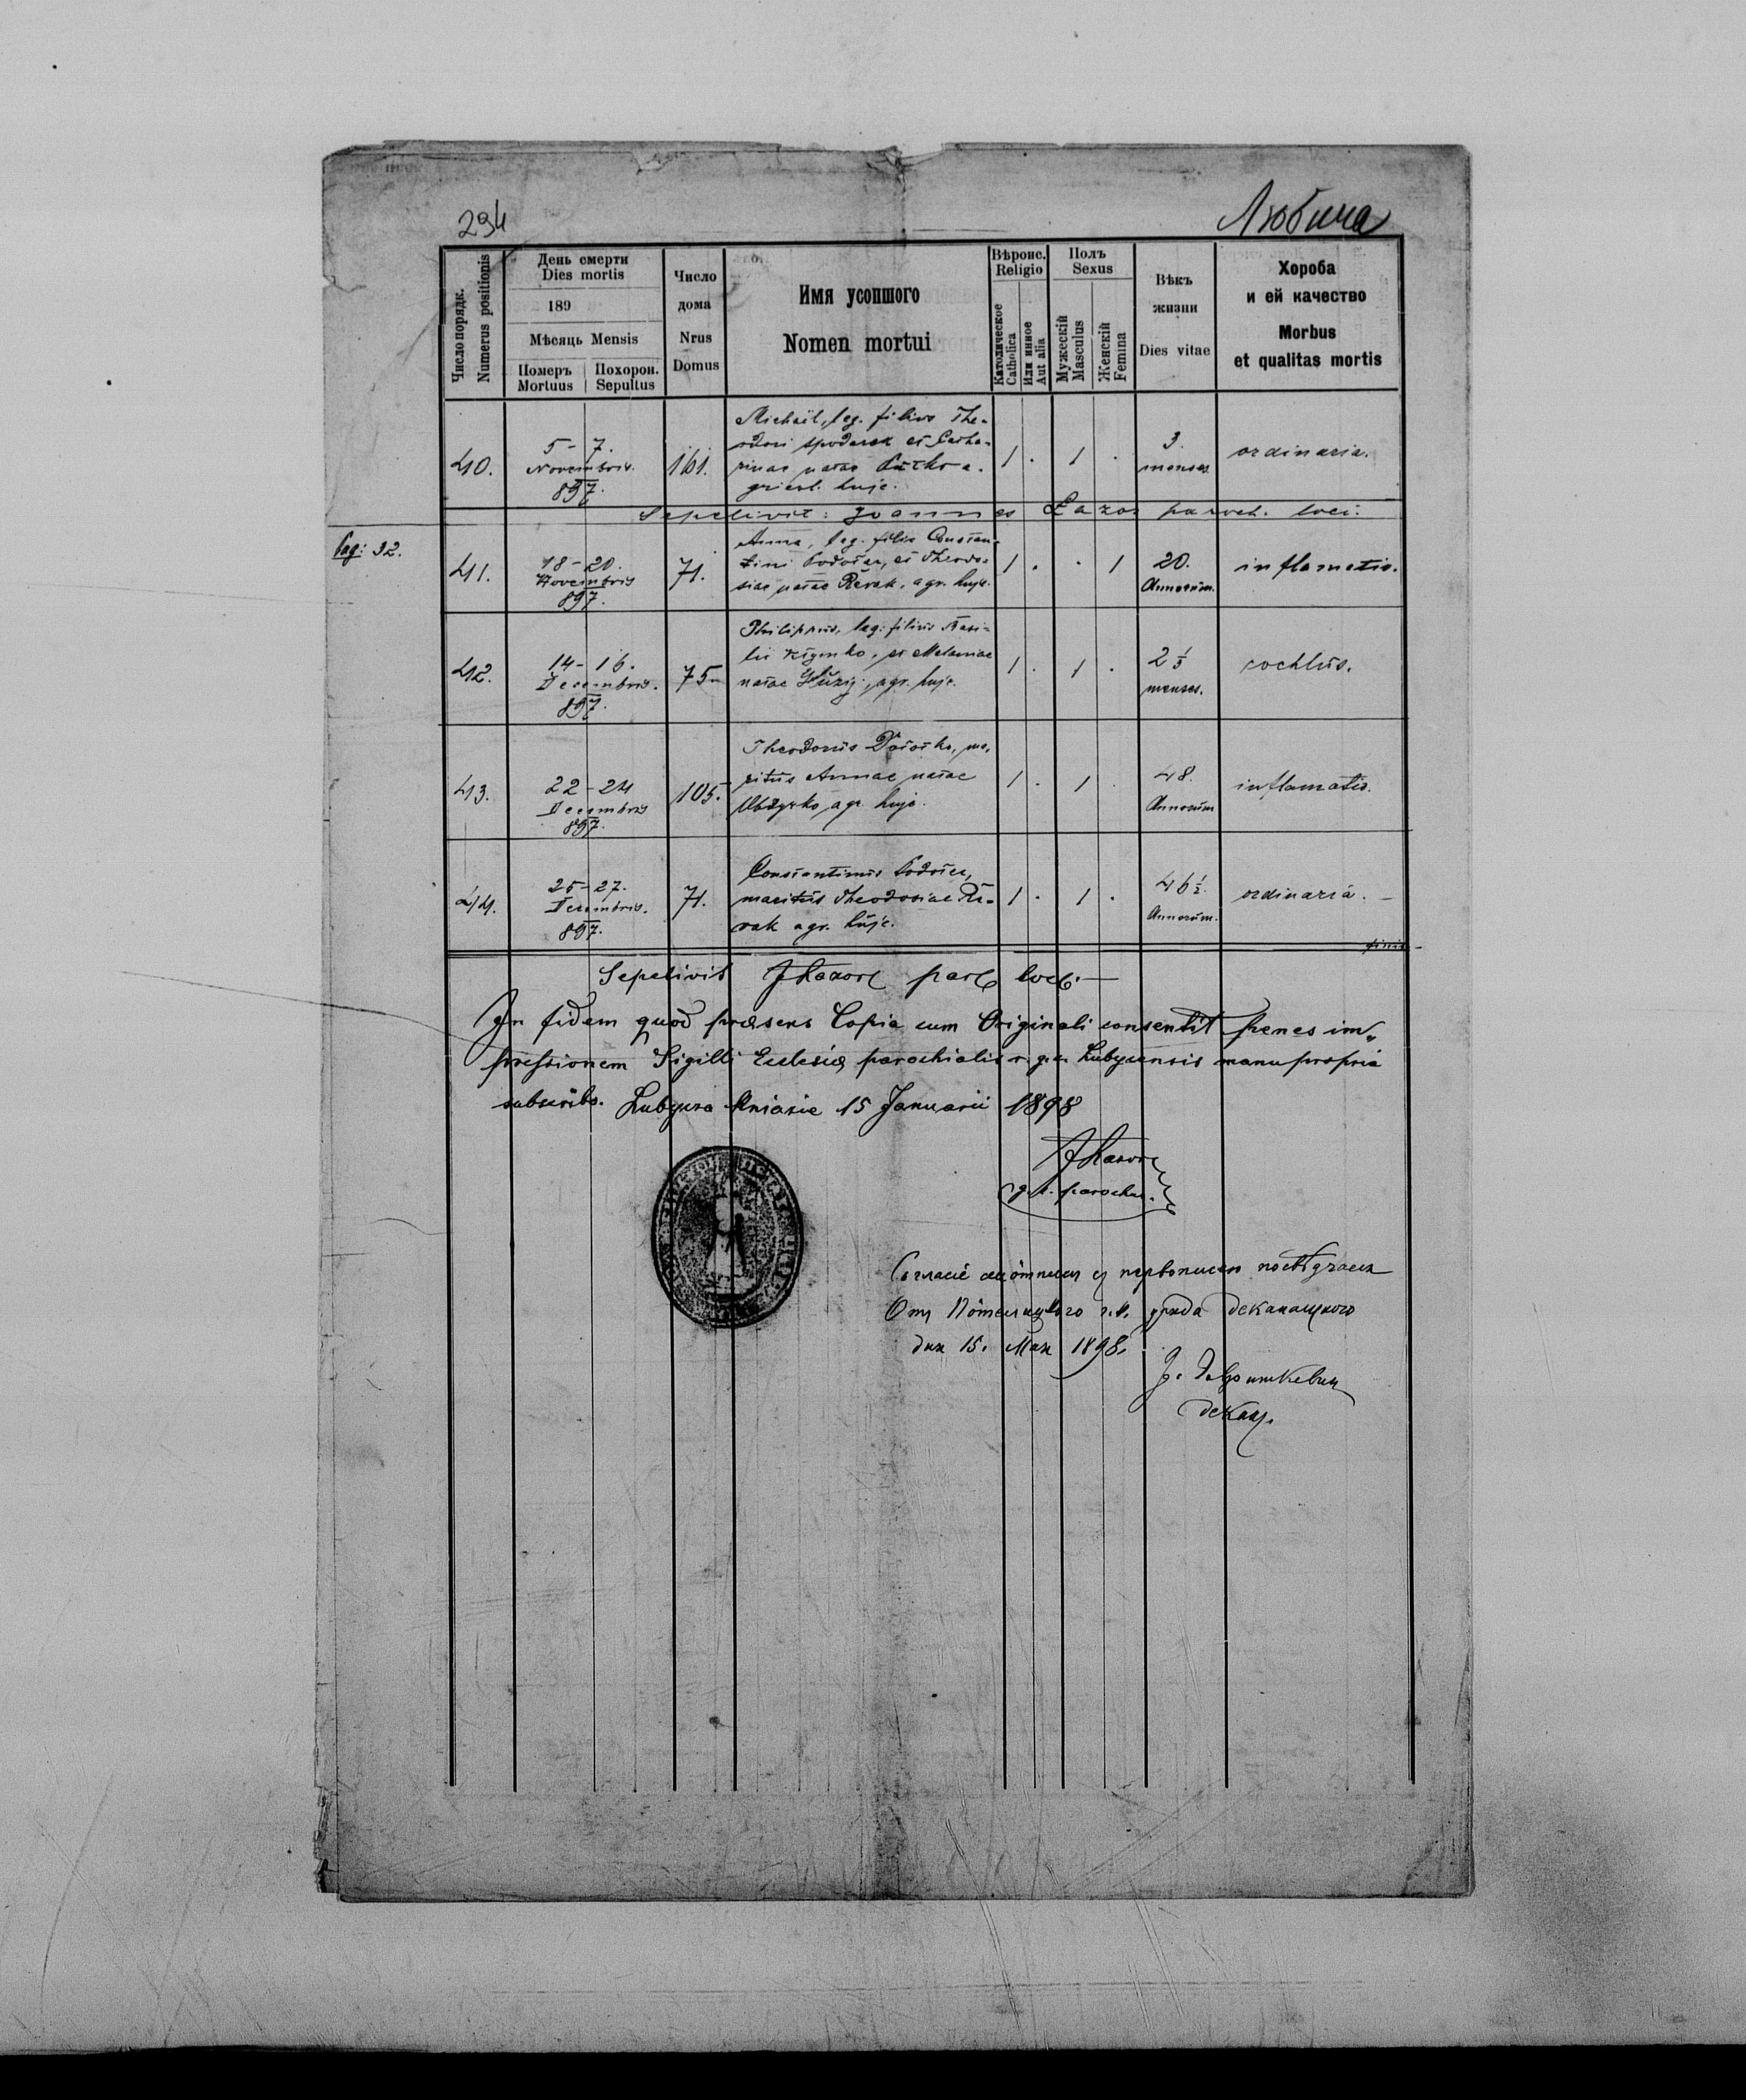 294
Любича
Число порядк.
Numerus positionis
День смерти
Dies mortis
189
Мѣсяць Mensis
Померъ
Mortuus
Похорон.
Sepultus
Число
дома
Nrus
Domus
Имя усопшого
Nomen mortui
Вѣроис.
Religio
Католическое
Catholica
Или инное
Aut alia
Полъ
Sexus
Мужескій
Masculus
Женскій
Femina
Вѣкъ
жизни
Dies vitae
Хороба
и ей качество
Morbus
et qualitas mortis
40.
5-7.
Novembris.
897.
161.
Michaël, leg. filius The-
odori et Catha-
rinae natae
huje.
1 . 1 .
3.
menses
ordinaria.
Sepelivit: Joannes Lazor paroch. loci.
Pag: 32.
41.
18-20.
Novembris
897.
71.
Anna, leg. filia Constan-
tini et Theodo-
siae natae Revak, agr. huje.
1 . . 1
20.
Annorum.
inflamatio.
42.
14-16.
Decembris.
897.
75
Philippus, leg: filius Basi-
lii et Melaniae
natae agr. huje.
1 . 1 .
2 1/3
menses.
43.
22-24
Decembris
897.
105.
Theodorus ma,
ritus Annae natae
agr. huje.
1 . 1 .
48.
Annorum
inflamatio.
44.
25-27.
Decembris.
897.
71.
Constantinus
maritus Theodosiae Re-
vak agr. huje.
1 . 1 .
46 1/2.
Annorum.
ordinaria. -
finis
Sepelivit JLazor par loci.
In fidem quod præsens Copia cum Originali consentit penes im„
pressionem Sigilli Eclesiæ parochialis r. g. c. Lubycensis manu propria
subscribo. Lubycza Kniazie 15 Januarii 1898
JLazor
g. r. parochus.
Отъ г.к. уряда деканацкого
дня 15. Мая 1898.
декан.